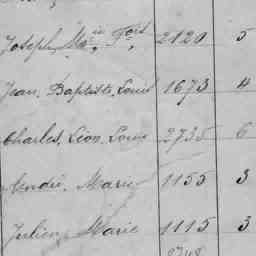 Joseph, Mie, Fois, 2120 5
Jean, Baptiste, Louis 1673 4
Charles, Léon, Louis 2735 6
André, Marie 1155 3
Julien, Marie 1115 3